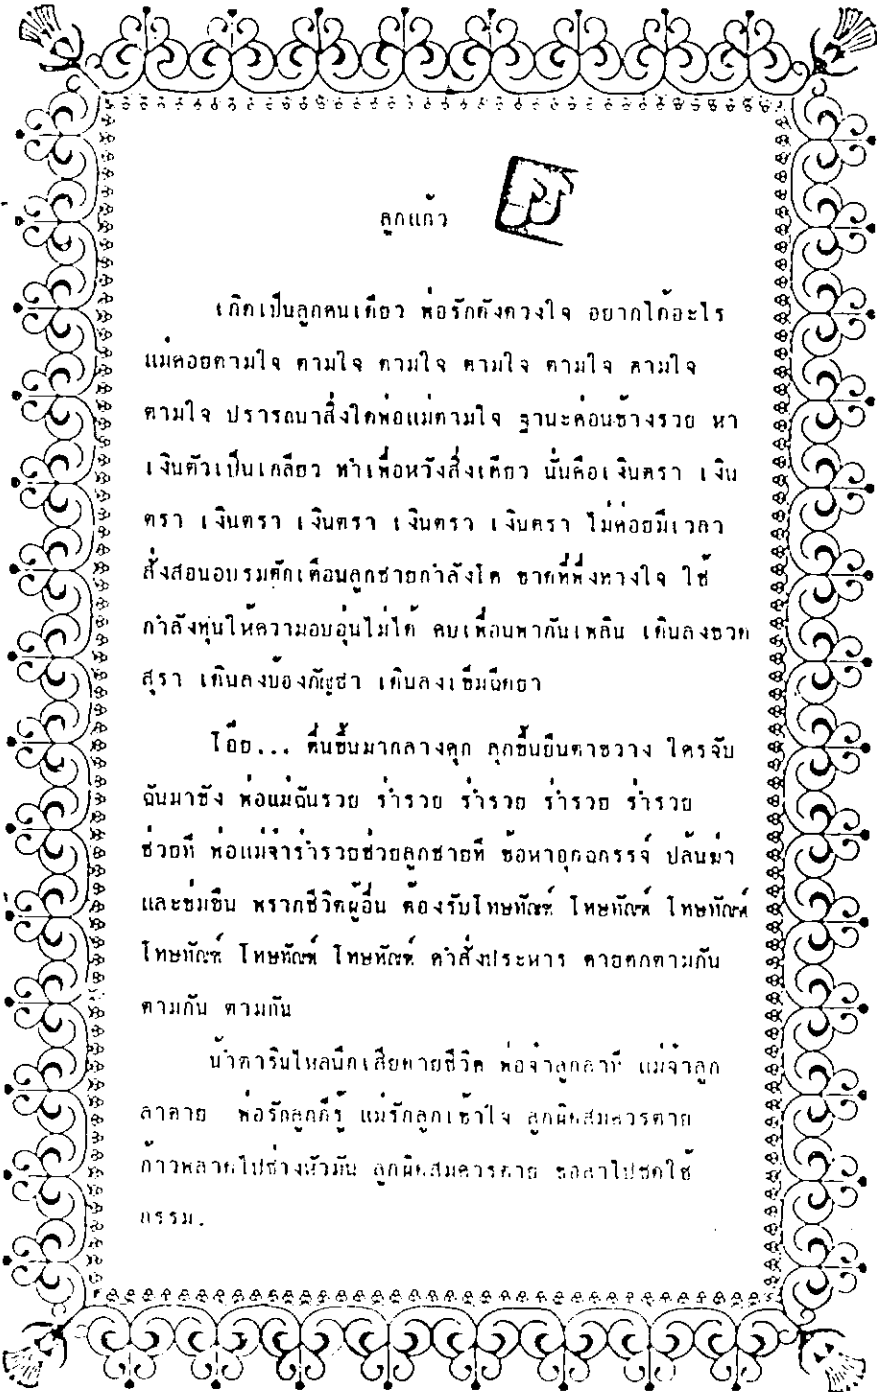 ลูกแก้ว
เกิดเป็นลูกคนเดียว พ่อรักดังดวงใจ อยากได้อะไร
แม่คอยตามใจ ตามใจ ตามใจ ตามใจ ตามใจ ตามใจ
ตามใจ ปรารถนาสิ่งใดพ่อแม่ตามใจ ฐานะค่อนข้างรวย หา
เงินตัวเป็นเกลียว ทำเพื่อหวังสิ่งเดียว นั่นคือเงินตรา เงิน
ตรา เงินตรา เงินตรา เงินตรา เงินตรา ไม่ค่อยมีเวลา
สั่งสอนอบรมตักเตือนลูกชายกำลังโต ขาดที่พึ่งทางใจ ใช้
กำลังทุ่นให้ความอบอุ่นไม่ได้ คบเพื่อนพากันเพลิน เดินลงขวด
สุรา เดินลงบ้องกัญชา เดินลงเข็มฉีดยา
โอ๊ย... ตื่นขึ้นมากลางคุก ลุกขึ้นยืนตาขวาง ใครจับ
ฉันมาขัง พ่อแม่ฉันรวย ร่ำรวย ร่ำรวย ร่ำรวย ร่ำรวย
ช่วยที พ่อแม่จ๋าร่ำรวยช่วยลูกชายที ข้อหาอุกฉกรรจ์ ปล้นฆ่า
และข่มขืน พรากชีวิตผู้อื่น ต้องรับโทษทัณฑ์ โทษทัณฑ์ โทษทัณฑ์
โทษทัณฑ์ โทษทัณฑ์ โทษทัณฑ์ คำสั่งประหาร ตายตกตามกัน
ตามกัน ตามกัน
น้ำตารินไหลนึกเสียดายชีวิต พ่อจ๋าลูกลาที แม่จ๋าลูก
ลาตาย พ่อรักลูกก็รู้ แม่รักลูกเข้าใจ ลูกผิดสมควรตาย
ก้าวพลาดไปช่างหัวมัน ลูกผิดสมควรตาย ขอลาไปชดใช้
กรรม.